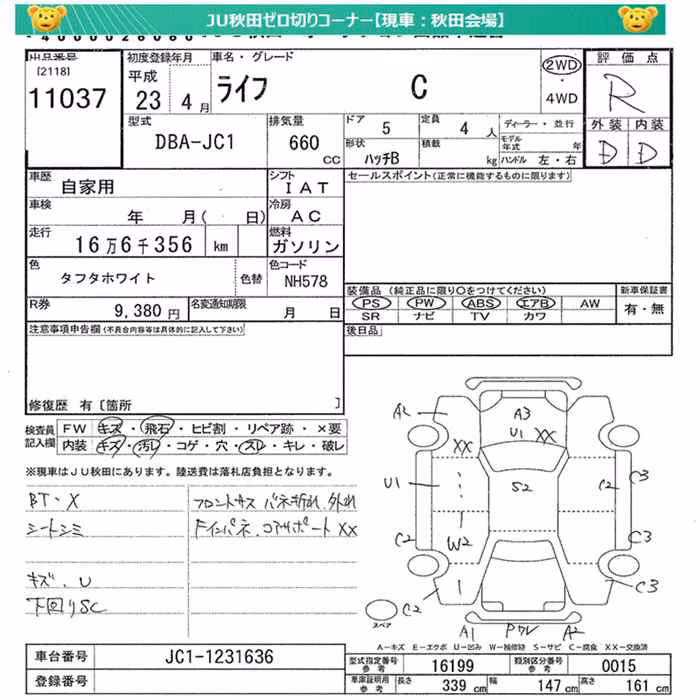 JU秋田ゼロ切りコーナー【現車：秋田会場】
出品番号
[2118]
11037
初度登録年月
平成
23 4月
車名・グレード
ライフ C
2WD
・
4WD
評価点
R
外装 内装
D D
型式
DBA-JC1
排気量
660 CC
ドア 5
定員 4 人
形状 ハッチB
積載 kg
ディーラー・並行
モデル年式 年
ハンドル 左・右
車歴 自家用
シフト IAT
車検 年 月( 日)
冷房 AC
走行 16万6千356 km
燃料 ガソリン
色 タフタホワイト 色替
色コード NH578
R券 9,380円
名変通知期限 月 日
セールスポイント(正常に機能するものに限ります)
装備品(純正品に限り○をつけてください)
PS PW ABS エアB AW
SR ナビ TV カワ
新車保証書
有・無
後日品
注意事項申告欄(不具合内容等は具体的に記入して下さい)
修復歴 有[箇所 ]
検査員記入欄
FW キズ・飛石・ヒビ割・リペア跡・×要
内装 キズ・汚レ・コゲ・穴・スレ・キレ・破レ
※現車はJU秋田にあります。陸送費は落札店負担となります。
BT・X
シートシミ
キズ、U
下回りSC
フロントサス バネ折れ、外れ
Fインパネ、コアサポート XX
A2
A3
U1 XX
XX
U1
S2
C2
C3
C2
W2
C3
C2
C3
A1 Pワレ A2
スペア
A-キズ E-エクボ U-凹み W-補修跡 S-サビ C-腐食 XX-交換済
車台番号 JC1-1231636
登録番号
型式指定番号 参考 16199
類別区分番号 参考 0015
車庫証明用 参考
長さ 339 cm
幅 147 cm
高さ 161 cm